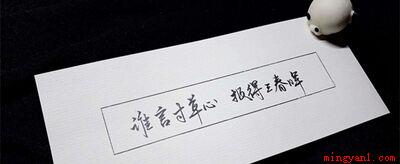 谁言寸草心 报得三春晖
mingyan1.com